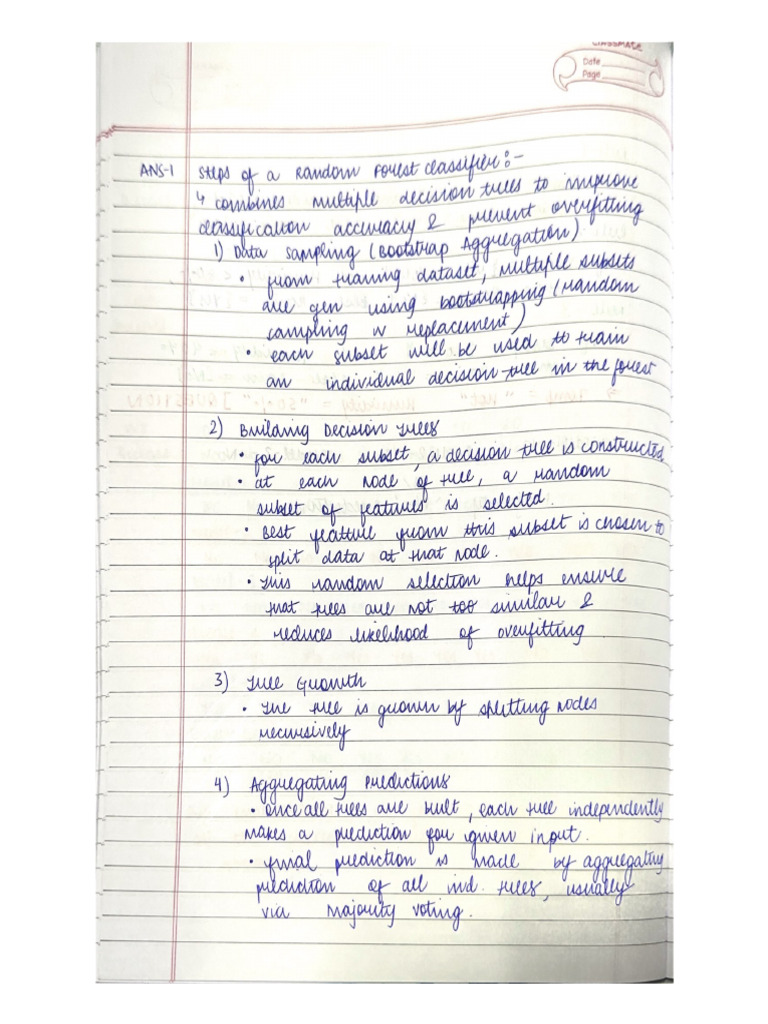 CLASSMATE
Date
Page
ANS-1 Steps of a Random Forest classifier:-
↳ combines multiple decision trees to improve
classification accuracy & prevent overfitting
1) Data Sampling (Bootstrap Aggregation)
• from training dataset, multiple subsets
are gen using bootstrapping (random
sampling w replacement)
• each subset will be used to train
an individual decision tree in the forest
2) Building Decision Trees
• for each subset, a decision tree is constructed
• at each node of tree, a random
subset of features is selected.
• Best feature from this subset is chosen to
split data at that node.
• This random selection helps ensure
that trees are not too similar &
reduces likelihood of overfitting
3) Tree Growth
• The tree is grown by splitting nodes
recursively
4) Aggregating Predictions
• once all trees are built, each tree independently
makes a prediction for given input.
• final prediction is made by aggregating
prediction of all ind. trees, usually
via majority voting.